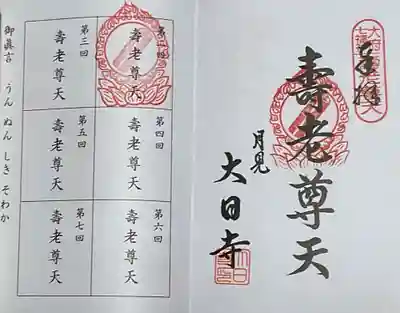 奉拝
壽老尊天
月見
大日寺
壽老尊天
第三回
壽老尊天
第四回
壽老尊天
第五回
壽老尊天
第六回
壽老尊天
第七回
壽老尊天
御真言 うん ぬん しき そわか